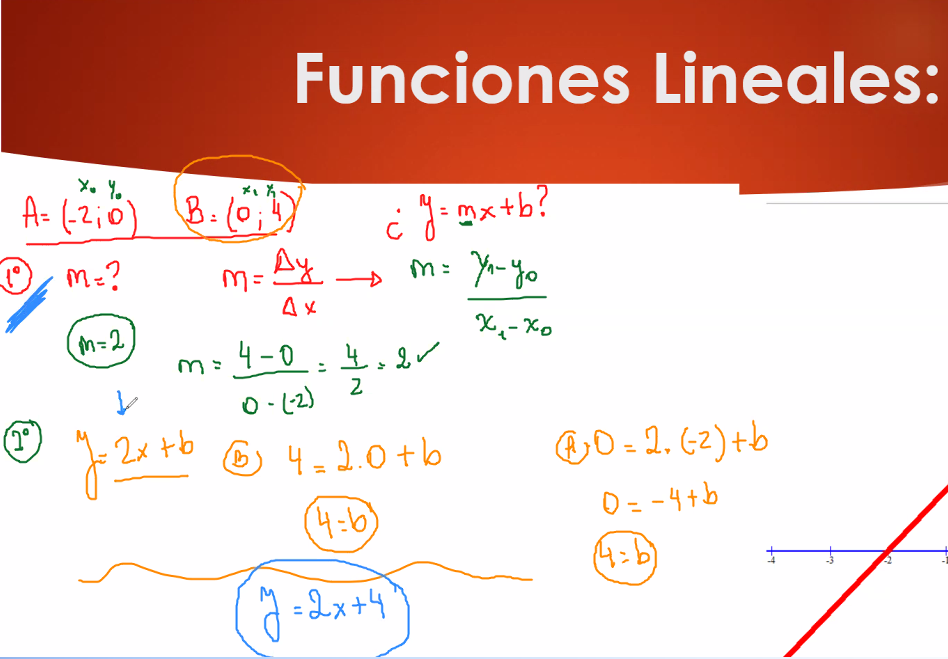 Funciones Lineales:
x₀ y₀
A = (-2; 0)
B = (0; 4)
¿ y = mx + b?
1° m = ?
m = Δy / Δx →
m = y₁ - y₀ / x₁ - x₀
m = 2
m = 4 - 0 / 0 - (-2) = 4/2 = 2 ✓
2° y = 2x + b
B) 4 = 2.0 + b
4 = b
A) 0 = 2.(-2) + b
0 = -4 + b
4 = b
y = 2x + 4
-4 -3 -2 -1